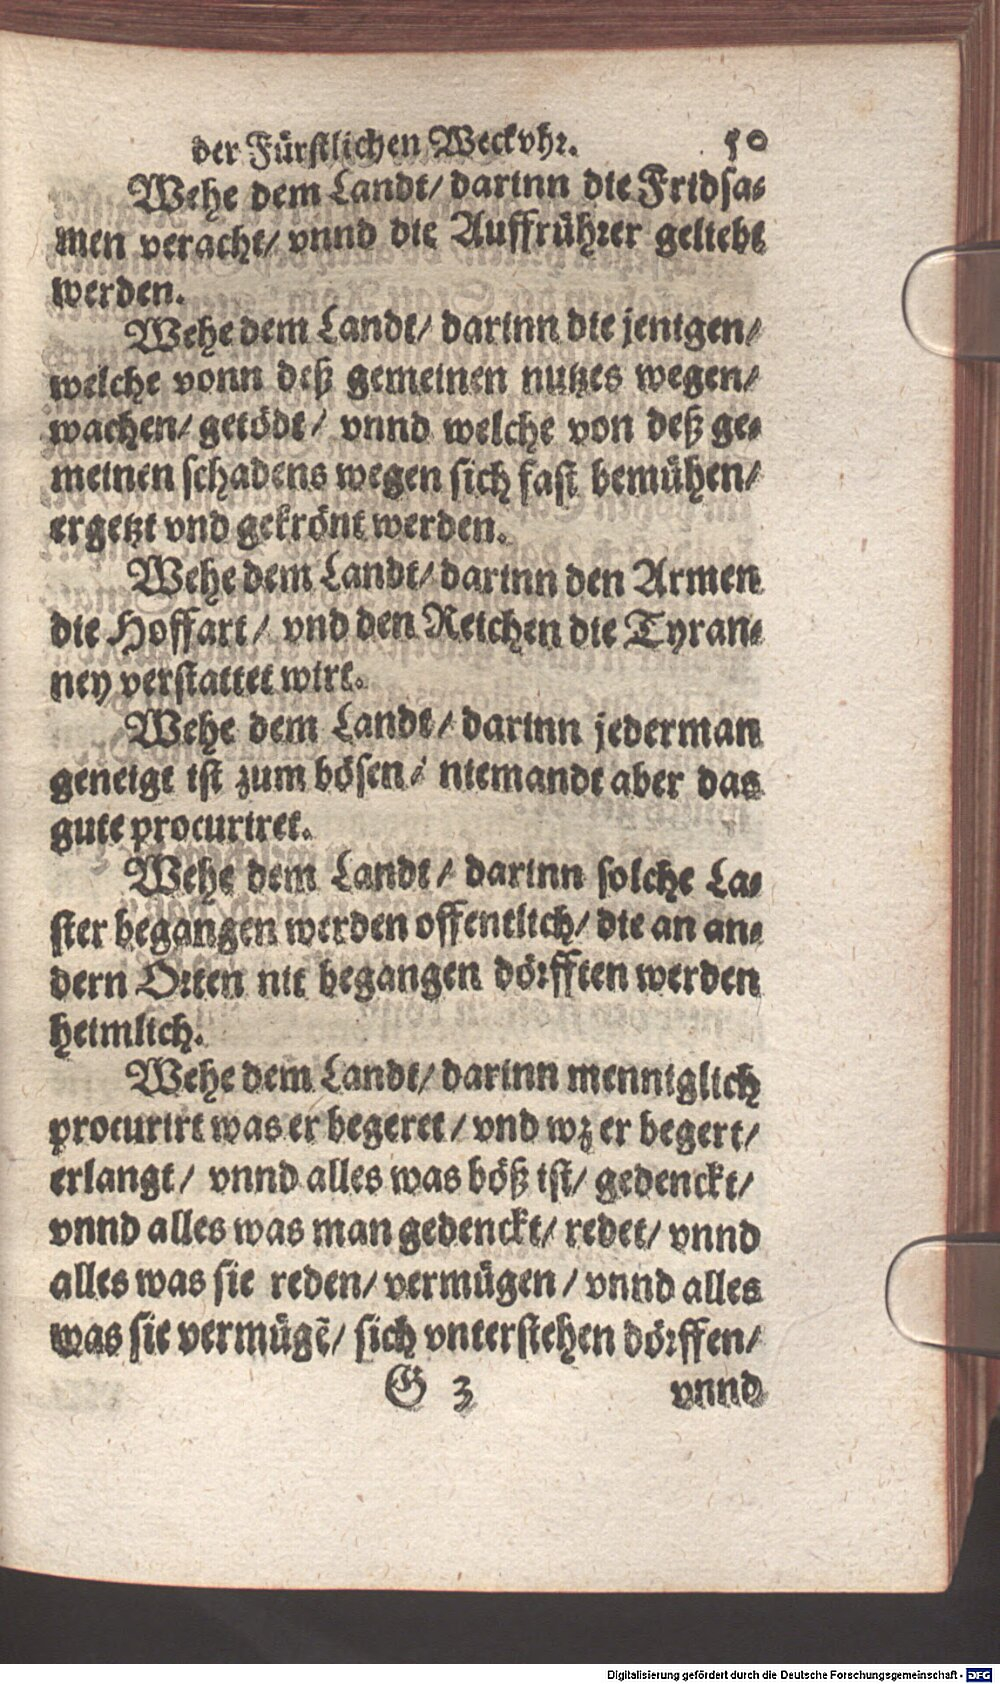 der Fürstlichen Weckvhr. 50
Wehe dem Landt/ darinn die Fridsa-
men veracht/ vnnd die Auffrührer geliebt
werden.
Wehe dem Landt/ darinn die jenigen/
welche vonn deß gemeinen nutzes wegen/
wachen/ getödt/ vnnd welche von deß ge-
meinen schadens wegen sich fast bemühen/
ergetzt vnd gekrönt werden.
Wehe dem Landt/ darinn den Armen
die Hoffart/ vnd den Reichen die Tyran-
ney verstattet wirt.
Wehe dem Landt/ darinn jederman
geneigt ist zum bösen/ niemandt aber das
gute procuriret.
Wehe dem Landt/ darinn solche La-
ster begangen werden offentlich/ die an an-
dern Orten nit begangen dörfften werden
heimlich.
Wehe dem Landt/ darinn menniglich
procurirt was er begeret/ vnd wz er begert/
erlangt/ vnnd alles was böß ist/ gedenckt/
vnnd alles was man gedenckt/ redet/ vnnd
alles was sie reden/ vermügen/ vnnd alles
was sie vermügẽ/ sich vnterstehen dörffen/
G 3 vnnd
Digitalisierung gefördert durch die Deutsche Forschungsgemeinschaft - DFG